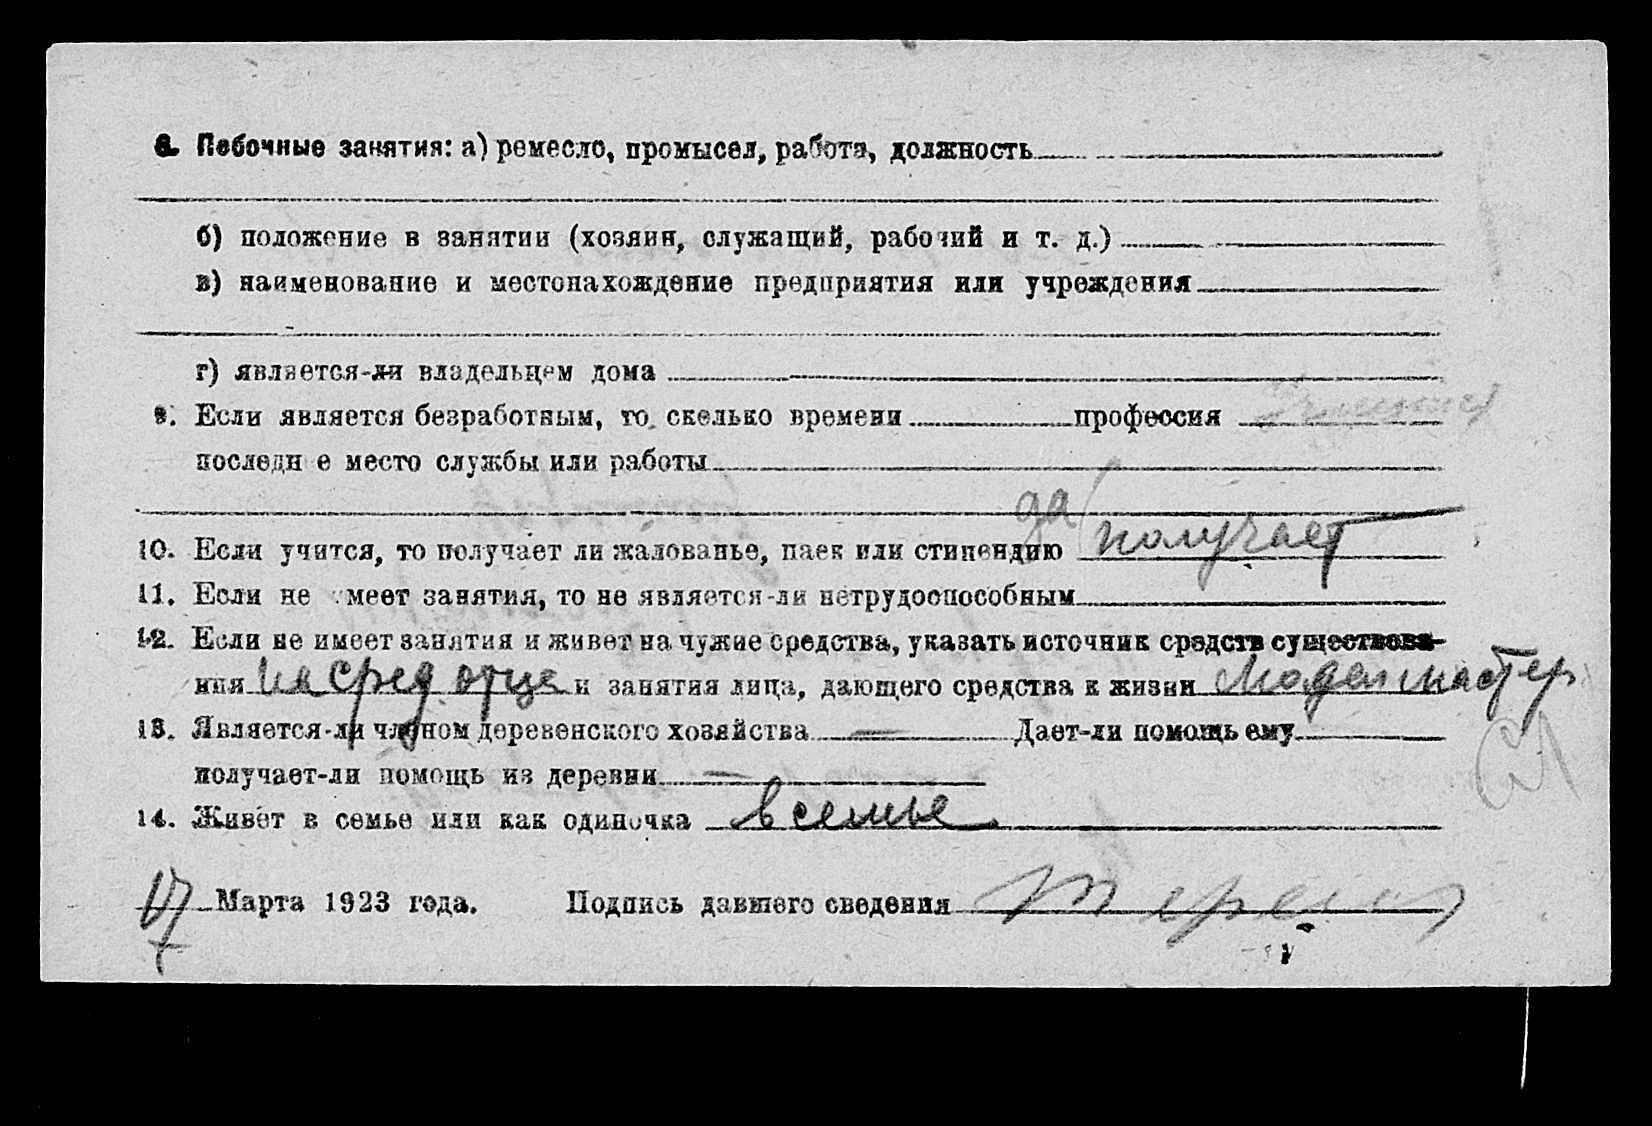 8. Побочные занятия: а) ремесло, промысел, работа, должность
б) положение в занятии (хозяин, служащий, рабочий и т. д.)
в) наименование и местонахождение предприятия или учреждения
г) является-ли владельцем дома
9. Если является безработным, то сколько времени профессия
последн е место службы или работы
да
10. Если учится, то получает ли жалованье, паек или стипендию получает
11. Если не меет занятия, то не является-ли нетрудоспособным
12. Если не имеет занятия и живет на чужие средства, указать источник средств существова-
ния на сред отца и занятия лица, дающего средства к жизни Модел мастер
13. Является-ли членом деревенского хозяйства — Дает-ли помощь ему
получает-ли помощь из деревни —
14. Живет в семье или как одиночка в семье
17 Марта 1923 года. Подпись давшего сведения